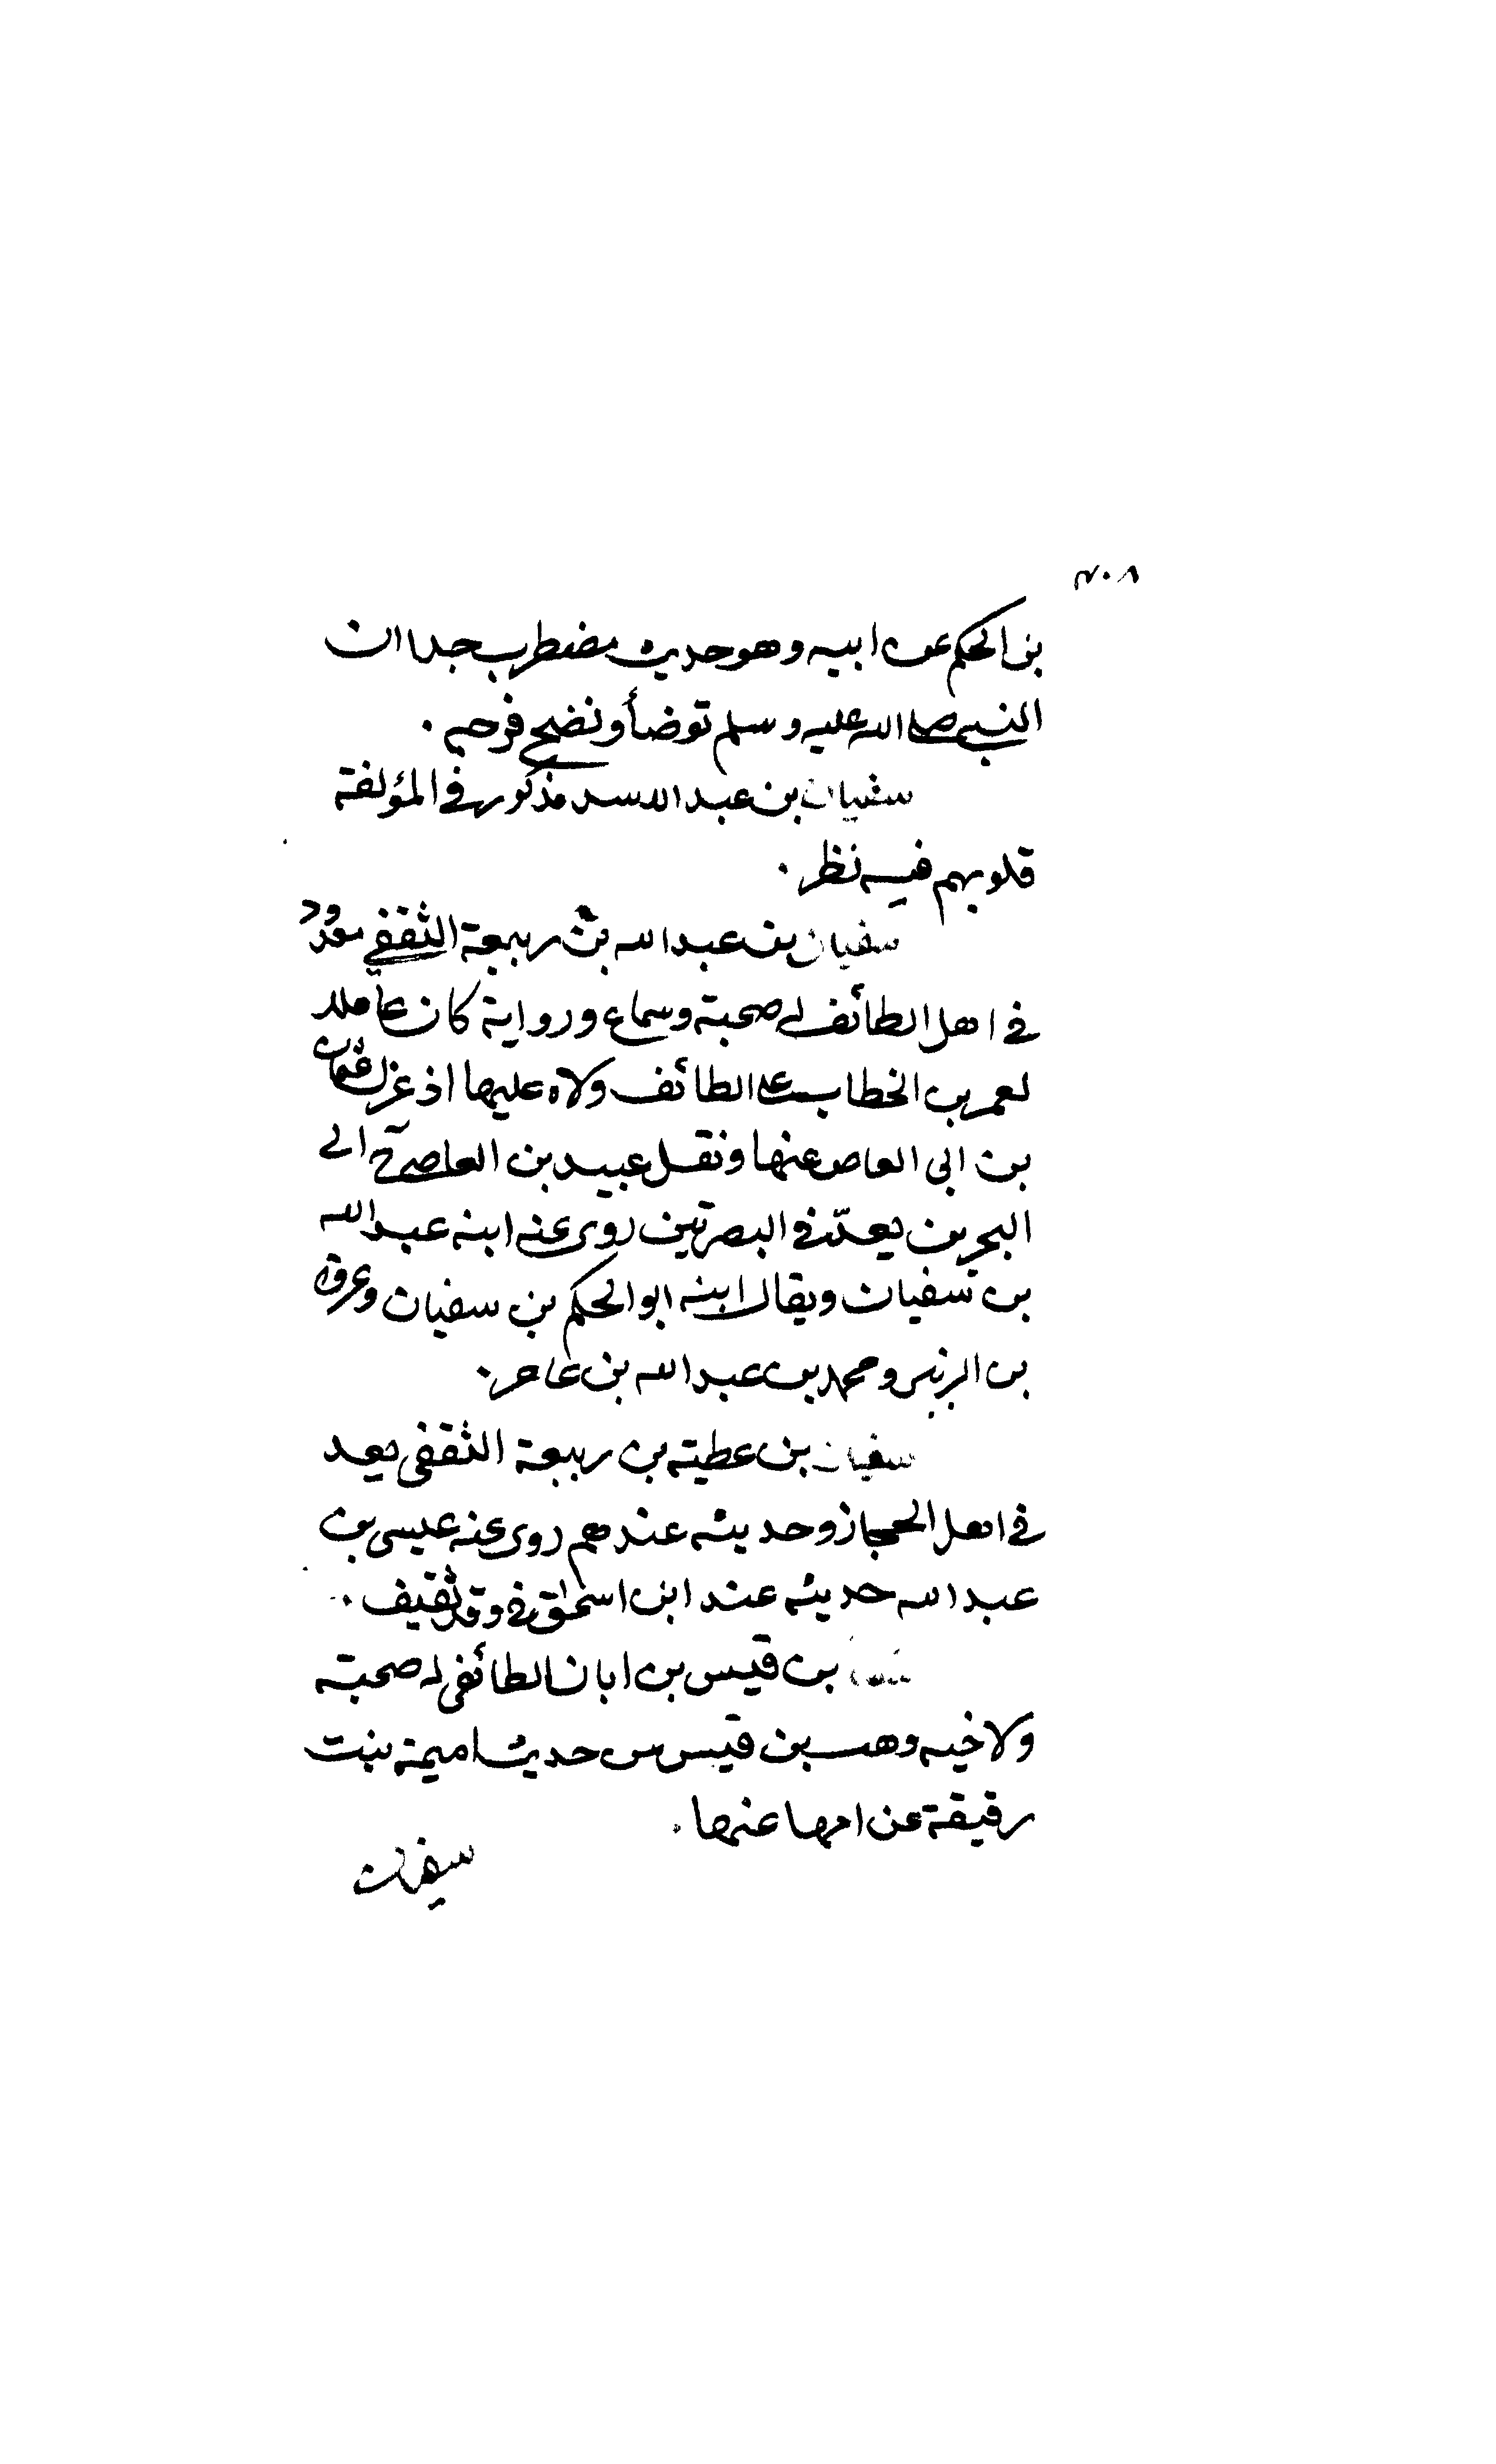 ٣٠٨
بن الحكم عن ابيه وهو حديث مضطرب جدا ان
النبي صلى الله عليه وسلم توضأ ونضح فرجه .
سفيان بن عبد الاسد مذكور في المؤلفة
قلوبهم فيه نظر .
سفيان بن عبد الله بن ربيعة الثقفي معدود
في اهل الطائف له صحبة وسماع ورواية كان عاملا
لعمر بن الخطاب على الطائف ولاه عليها اذ عزل عثمان
بن ابى العاص عنها ونقل عبيد بن العاص الى
البحرين يعدّ في البصريين روى عنه ابنه عبد الله
بن سفيان ويقال ابنه ابو الحكم بن سفيان وعروة
بن الزبير ومحمد بن عبد الله بن عامر .
سفيان بن عطية بن ربيعة الثقفى يعد
في اهل الحجاز وحديثه عندهم روى عنه عيسى بن
عبد الله حديثه عند ابن اسحاق في وفد ثقيف .
بن قيس بن ابان الطائفى له صحبة
ولاخيه وهب بن قيس من حديث اميمة بنت
رقيقة عن امها عنها .
سفيان